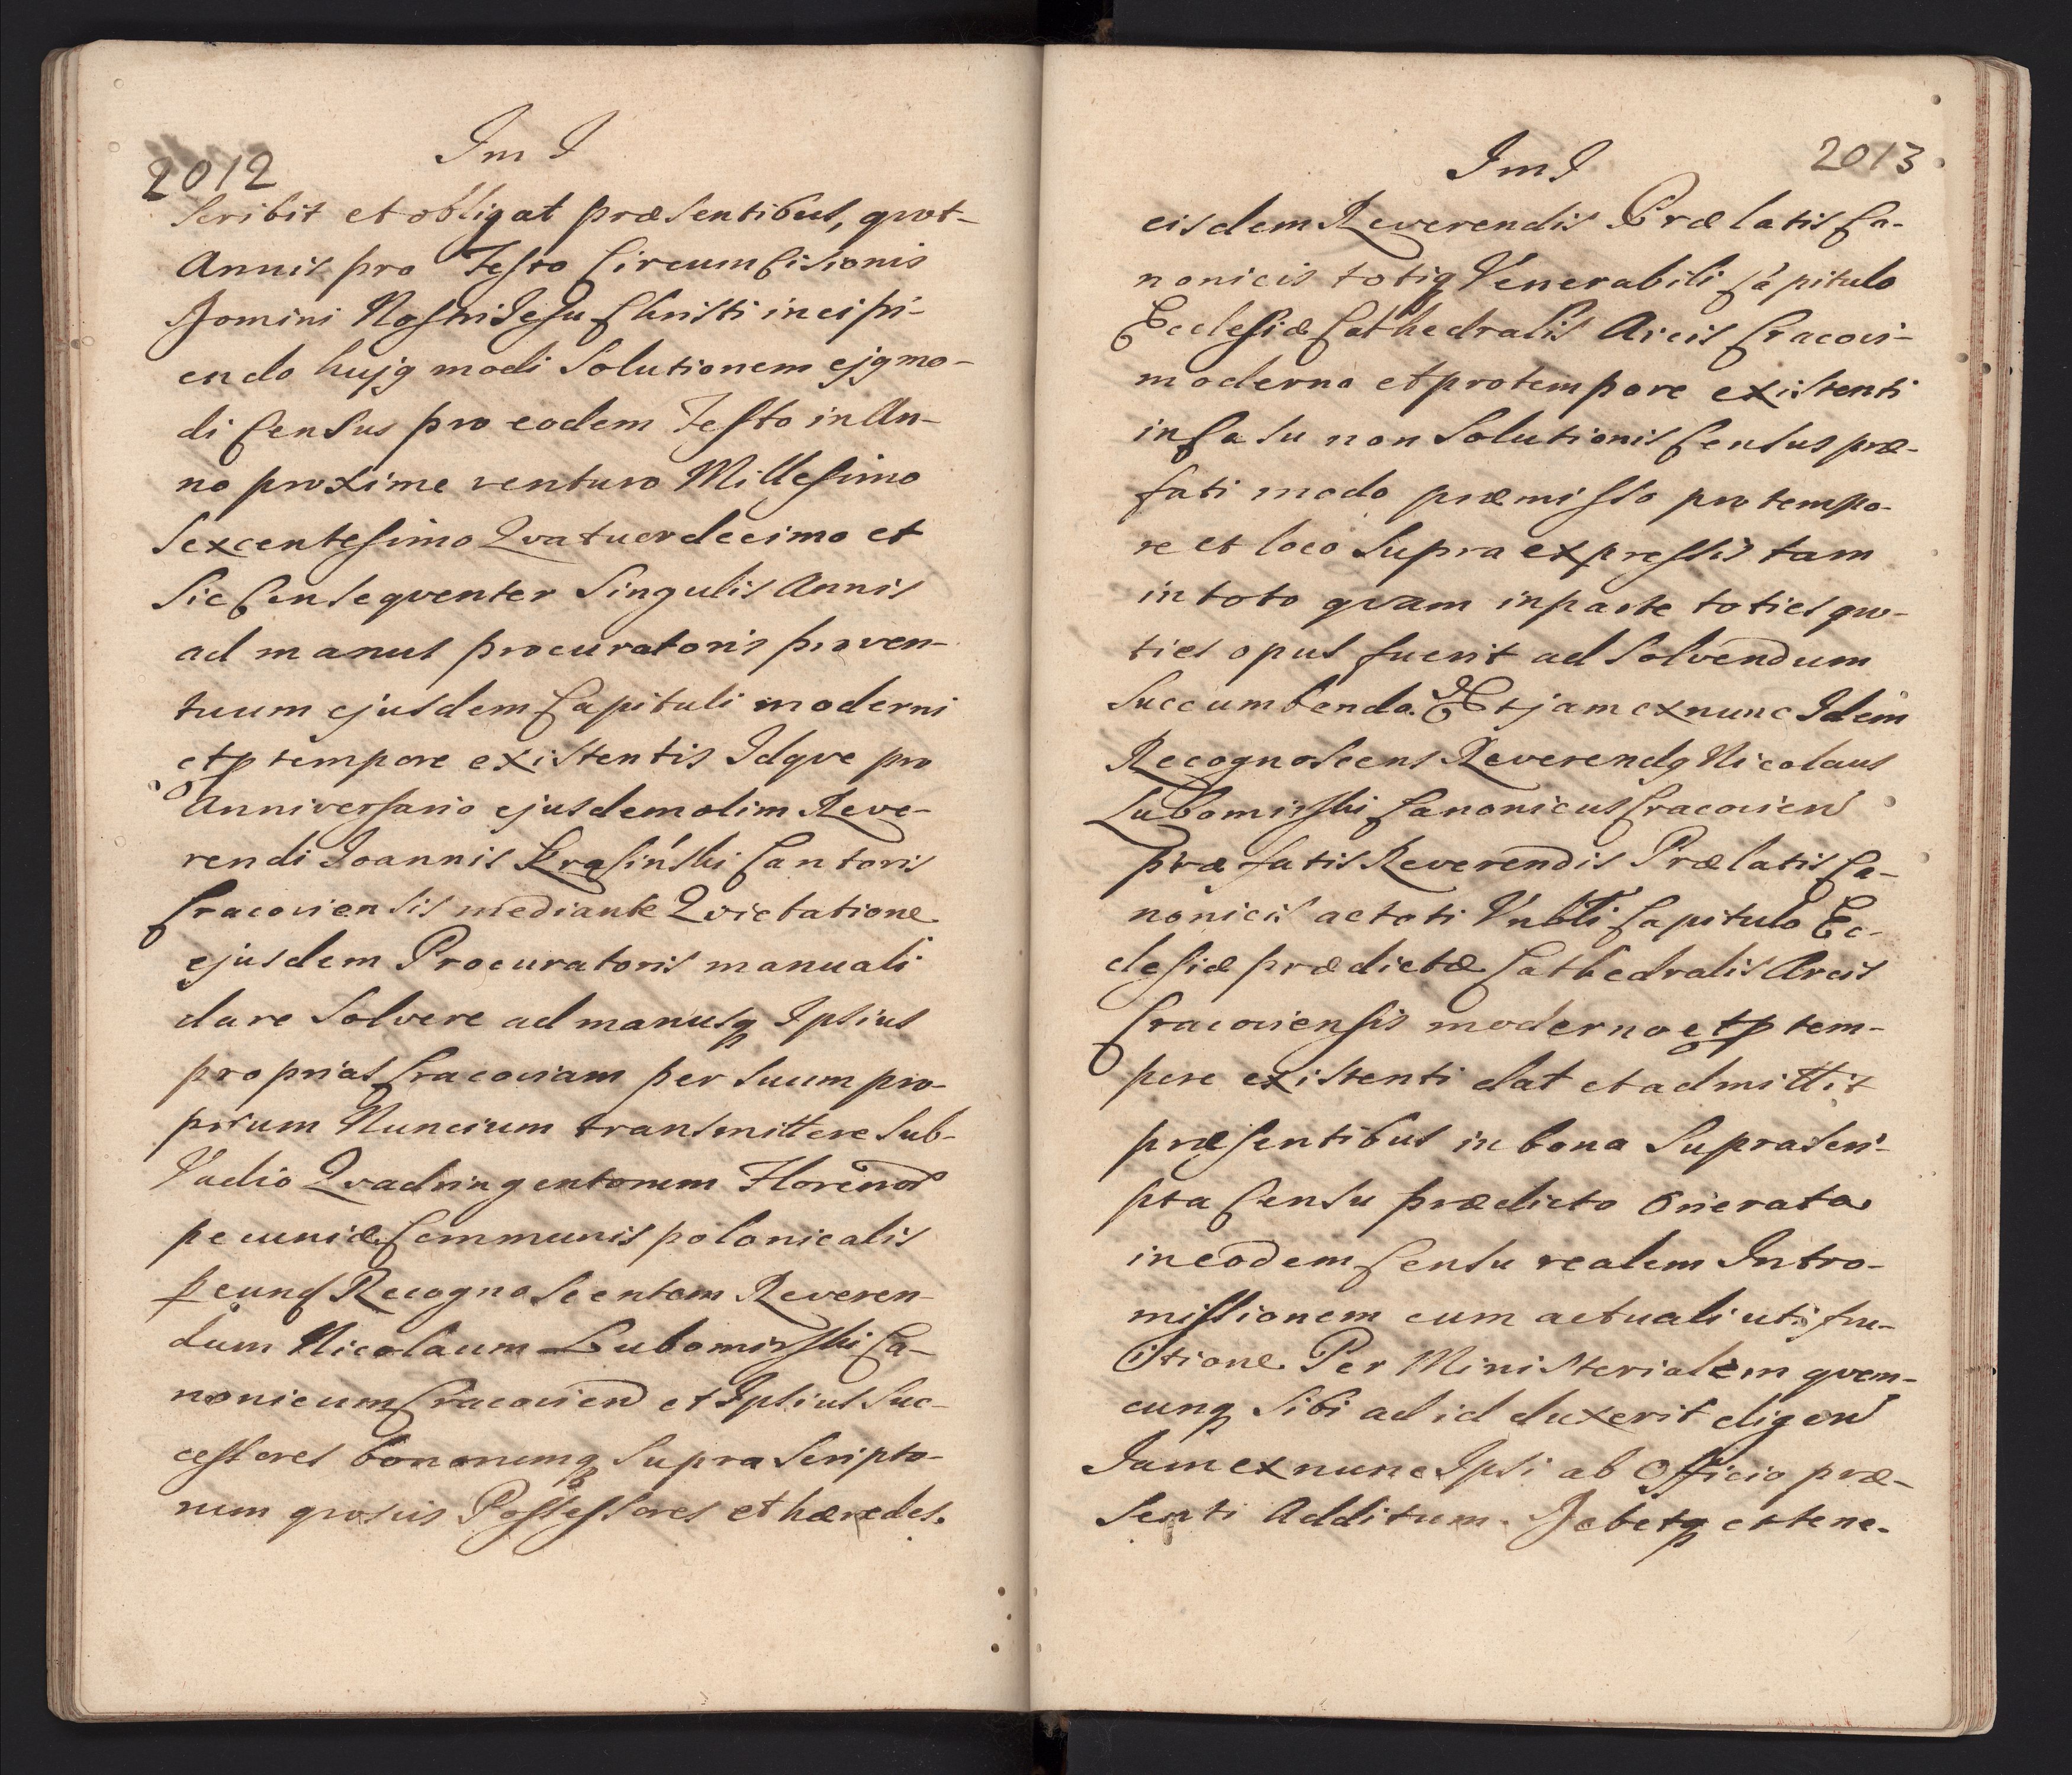 2012
Im I
scribit et obligat præsentibus, qvot-
Annis pro Festo Circumcisionis
Domini Nostri Jesu Christi incipi-
endo hujq modi Solutionem ejqmo-
di Census pro eodem Festo in An-
no proxime venturo Millesimo
Sexcentesimo Qvatuordecimo et
Sic Consequenter Singulis Annis
ad manus procuratoris proven-
tuum ejusdem Capituli moderni
et p tempore existentis Idqve pro
Anniversario ejusdem olim Reve-
rendi Joannis Krasiński Cantoris
Cracoviensis mediante Qvietatione
ejusdem Procuratoris manuali
dare Solvere ad manusq Ipsius
proprias Cracoviam per Suum pro-
prium Nuncium transmittere Sub-
Vadio Qvadringentorum Floreno
pecuniæ Communis polonicalis
p eund Recognoscentem Reveren-
dum Nicolaum Lubomirski Ca-
nonicum Cracovien et Ipsius Suc-
cessores bonorumq Supra Scripto-
rum qvosvis Possessores et hæredes.
2013
Im I
eisdem Reverendis Prælatis Ca-
nonicis totiq Venerabili Capitulo
Ecclesiæ Cathedralis Arcis Cracovi-
moderno et pro tempore existenti
in Casu non Solutionis Census præ-
fati modo præmisso pro tempo-
re et loco Supra expressis tam
in toto qvam in parte toties qvo-
ties opus fuerit ad Solvendum
Succumbendo. Et jam ex nunc Idem
Recognoscens Reverendq Nicolaus
Lubomirski Canonicus Cracovien
præfatis Reverendis Prælatis Ca-
nonicis ac toti Vnbli Capitulo Ec-
clesiæ prædictæ Cathedralis Arcis
Cracoviensis moderno et p tem-
pore existenti dat et admittit
præsentibus in bona Suprascri-
pta Censu prædicto Onerata
in eodem Censu realem Intro-
missionem cum actuali utifru-
itione Per Ministerialem qvem-
cunq Sibi ad id duxerit eligen
Jam ex nunc Ipsi ab Officio præ-
senti Additum. Debetq et tene-